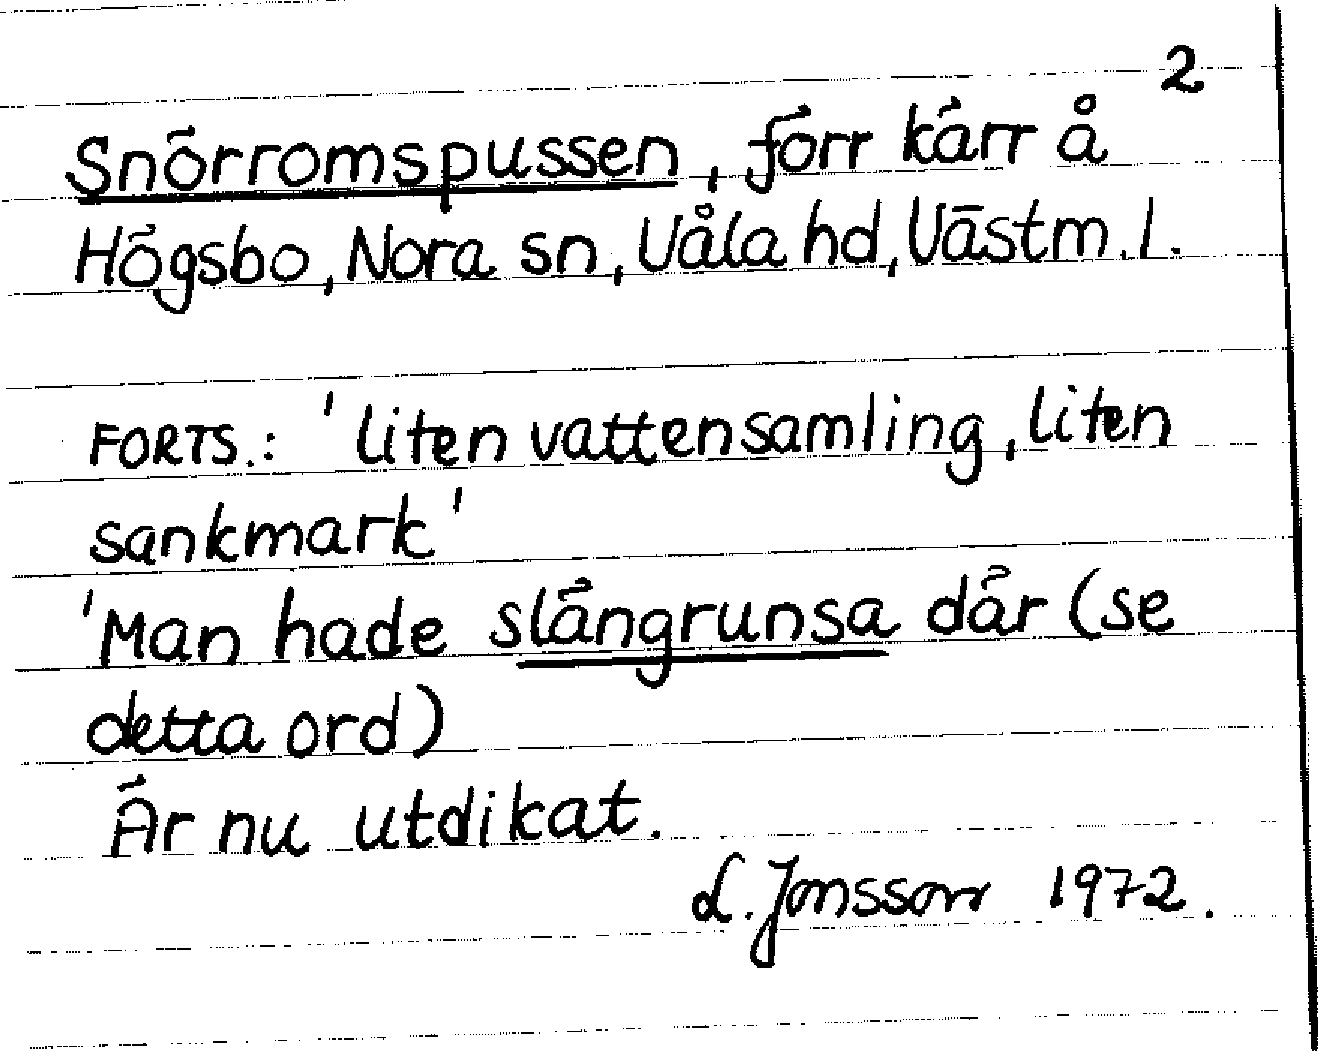 2
Snörromspussen, förr kärr å
Högsbo, Nora sn, Våla hd, Västm. l.
FORTS.: 'liten vattensamling, liten
sankmark'
'Man hade slängrunsa där (se
detta ord)
Är nu utdikat.
L. Jonsson 1972.